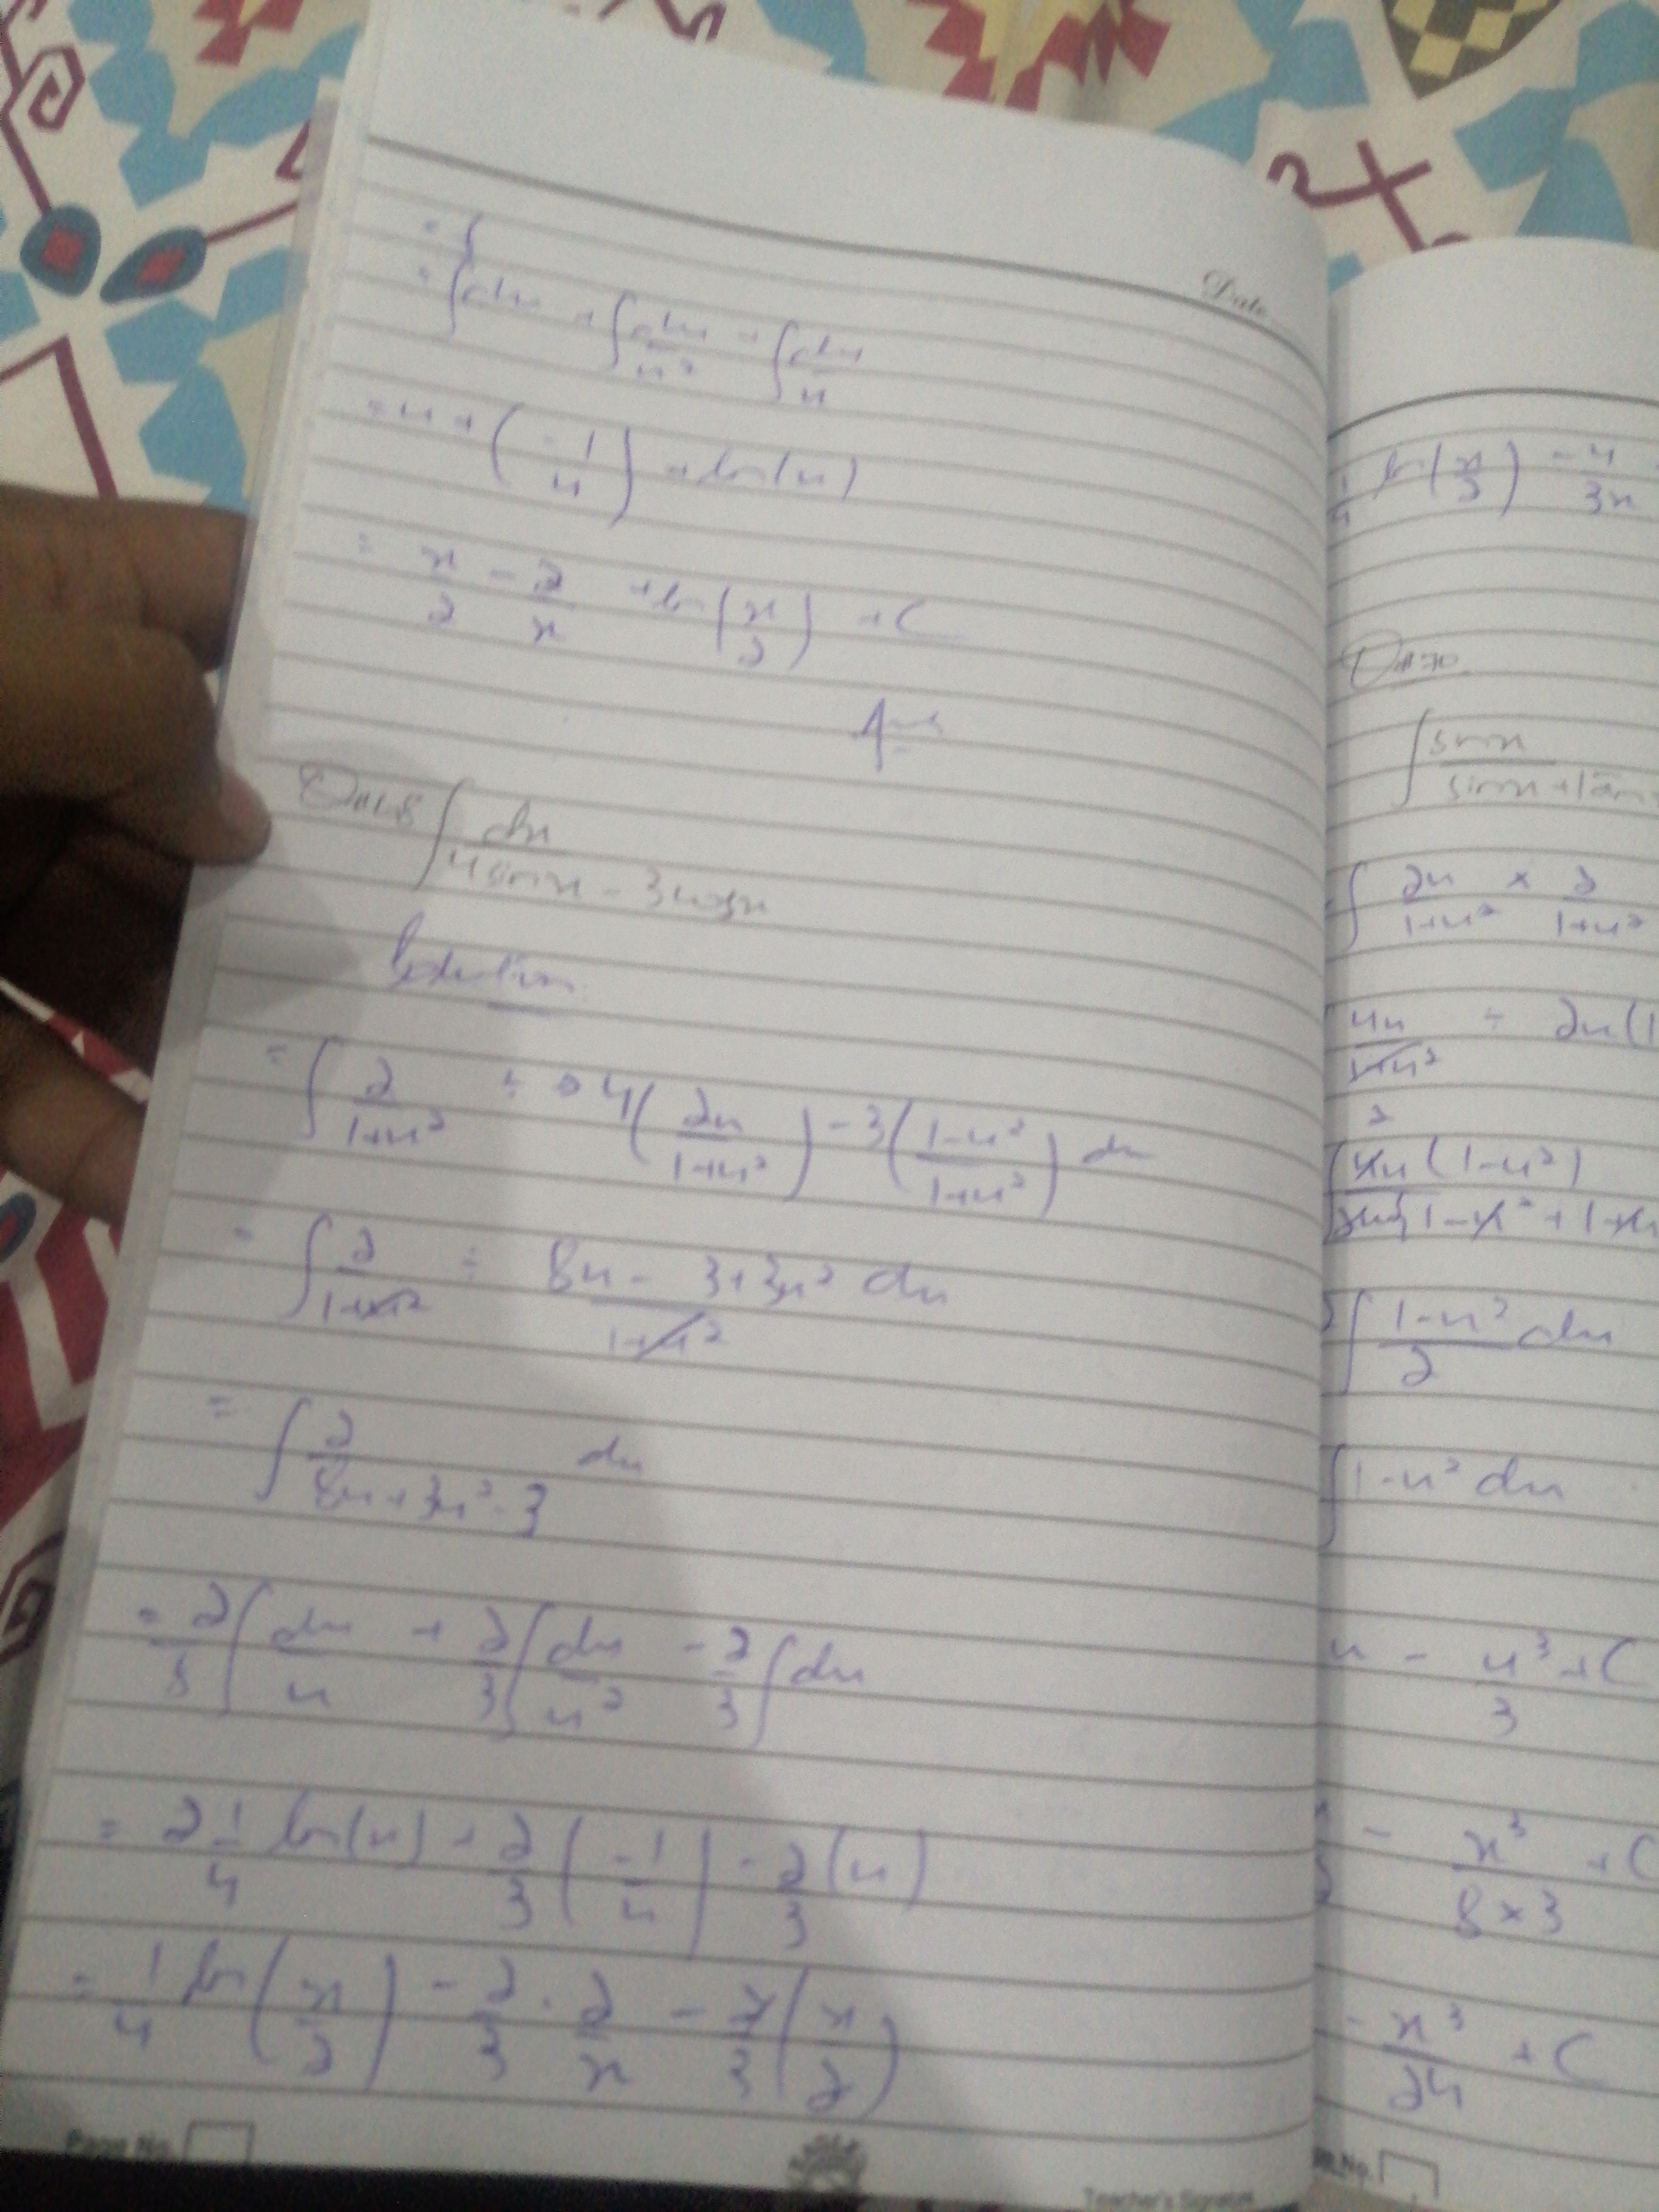 Date
= ∫
= ∫ du + ∫ du/u² + ∫ du/u
= u + (-1/u) + ln(u)
= x/2 - 2/x + ln(x/2) + C
Ans
∫ dx/(4sinx - 3cosx)
Solution
= ∫ 2/(1+u²) ÷ 4(2u/(1+u²)) - 3((1-u²)/(1+u²)) du
= ∫ 2/(1+u²) ÷ (8u - 3+3u²)/(1+u²) du
= ∫ 2/(8u+3u²-3) du
= 2/8 ∫ du/u + 2/3 ∫ du/u² - 2/3 ∫ du
= 2 1/4 ln(u) + 2/3 (-1/u) - 2/3 (u)
= 1/4 ln(x/2) - 2/3 · 2/x - 2/3 (x/2)
Page No.
Teacher's Signature
ln(x/2) - 4/3x
∫ sinx/(sinx+tan
∫ 2u/(1+u²) × 2/(1+u²)
4u/(1+u²) ÷ 2u(1
2
4u(1-u²)
1-u²+1+u
∫ (1-u²)/2 du
∫ 1-u² du
u - u³/3 + C
- x³/(8×3) + C
- x³/24 + C
No.